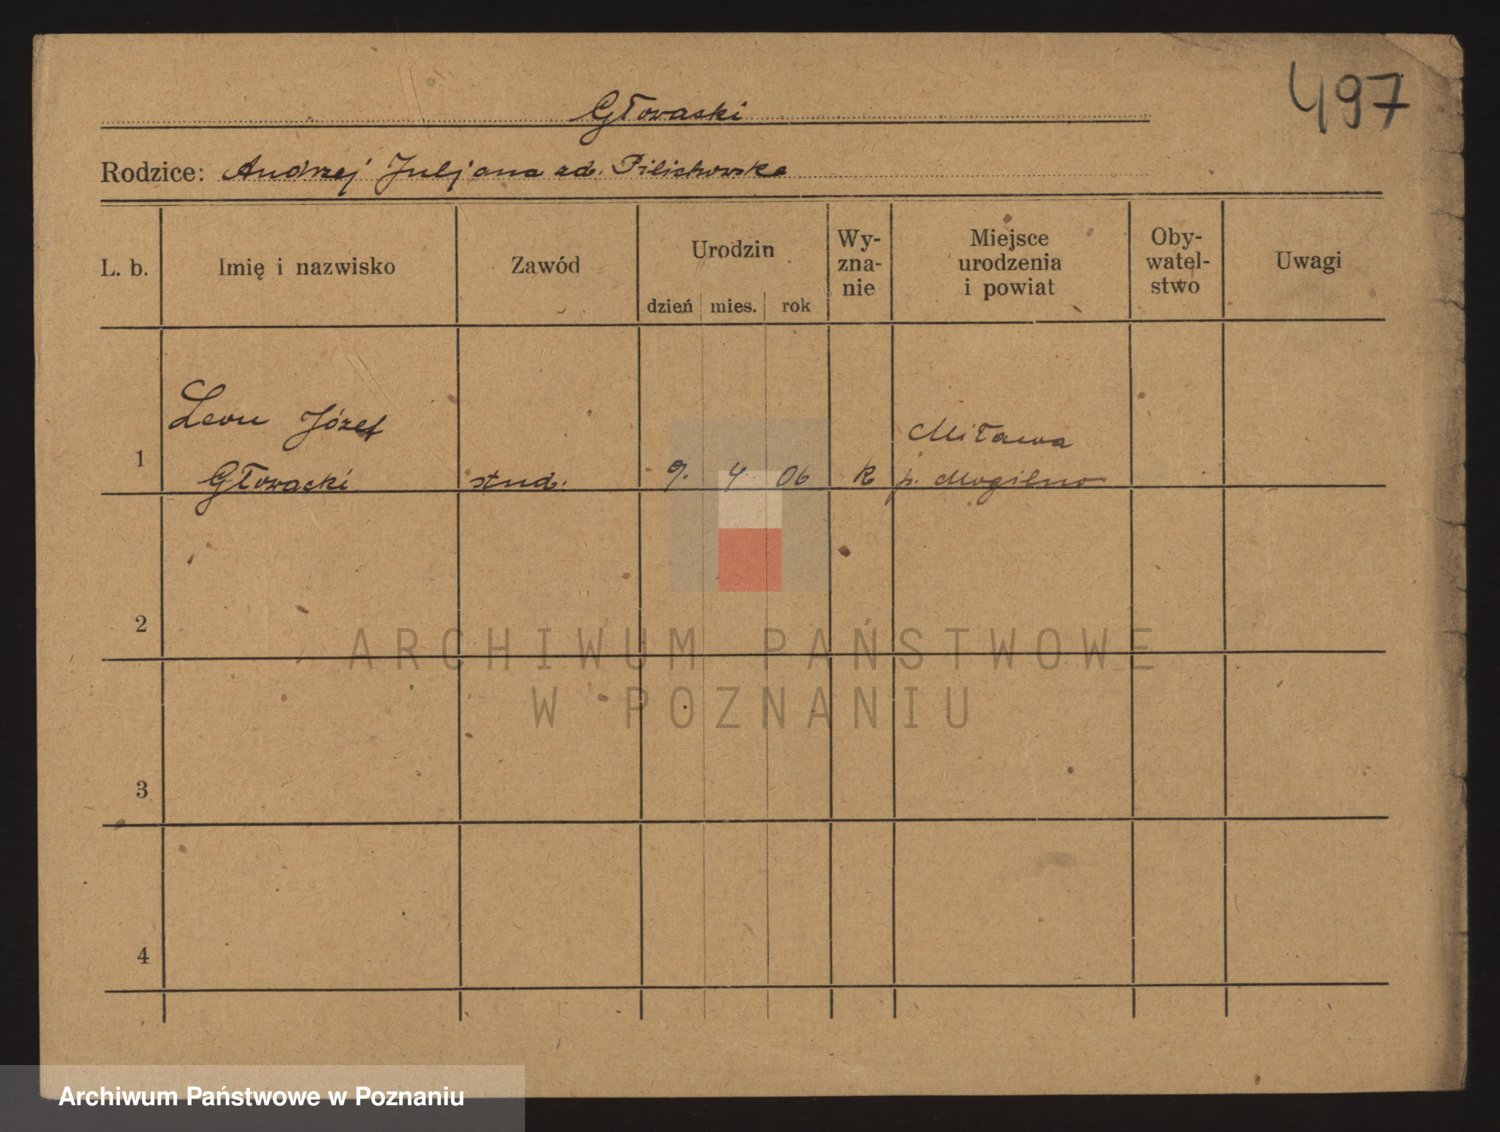 497
Głowacki
Rodzice: Andrzej Juljana zd. Pilichowska
L. b.
Imię i nazwisko
Zawód
Urodzin
dzień mies. rok
Wy-
zna-
nie
Miejsce
urodzenia
i powiat
Oby-
watel-
stwo
Uwagi
1
Leon Józef
Głowacki
stud.
9. 4 06
k
Miława
p. Mogilno
2
3
4
ARCHIWUM PAŃSTWOWE
W POZNANIU
Archiwum Państwowe w Poznaniu